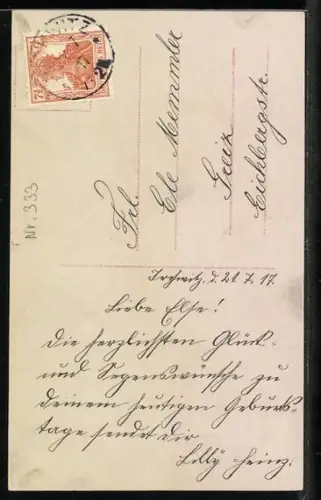 Frl.
Ele Memmler
Greiz
Eichbergstr.
Nr. 333
Irchwitz, d. 21. 7. 17.
Liebe Else!
Die herzlichsten Glück-
und Segenswünsche zu
deinem heutigen Geburts-
tage sendet dir
Lilly Heinz.
7½